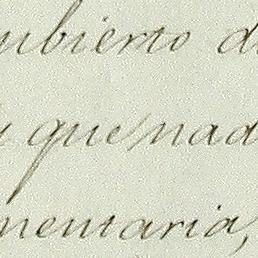 ubierto d
y que nad
mentaria,